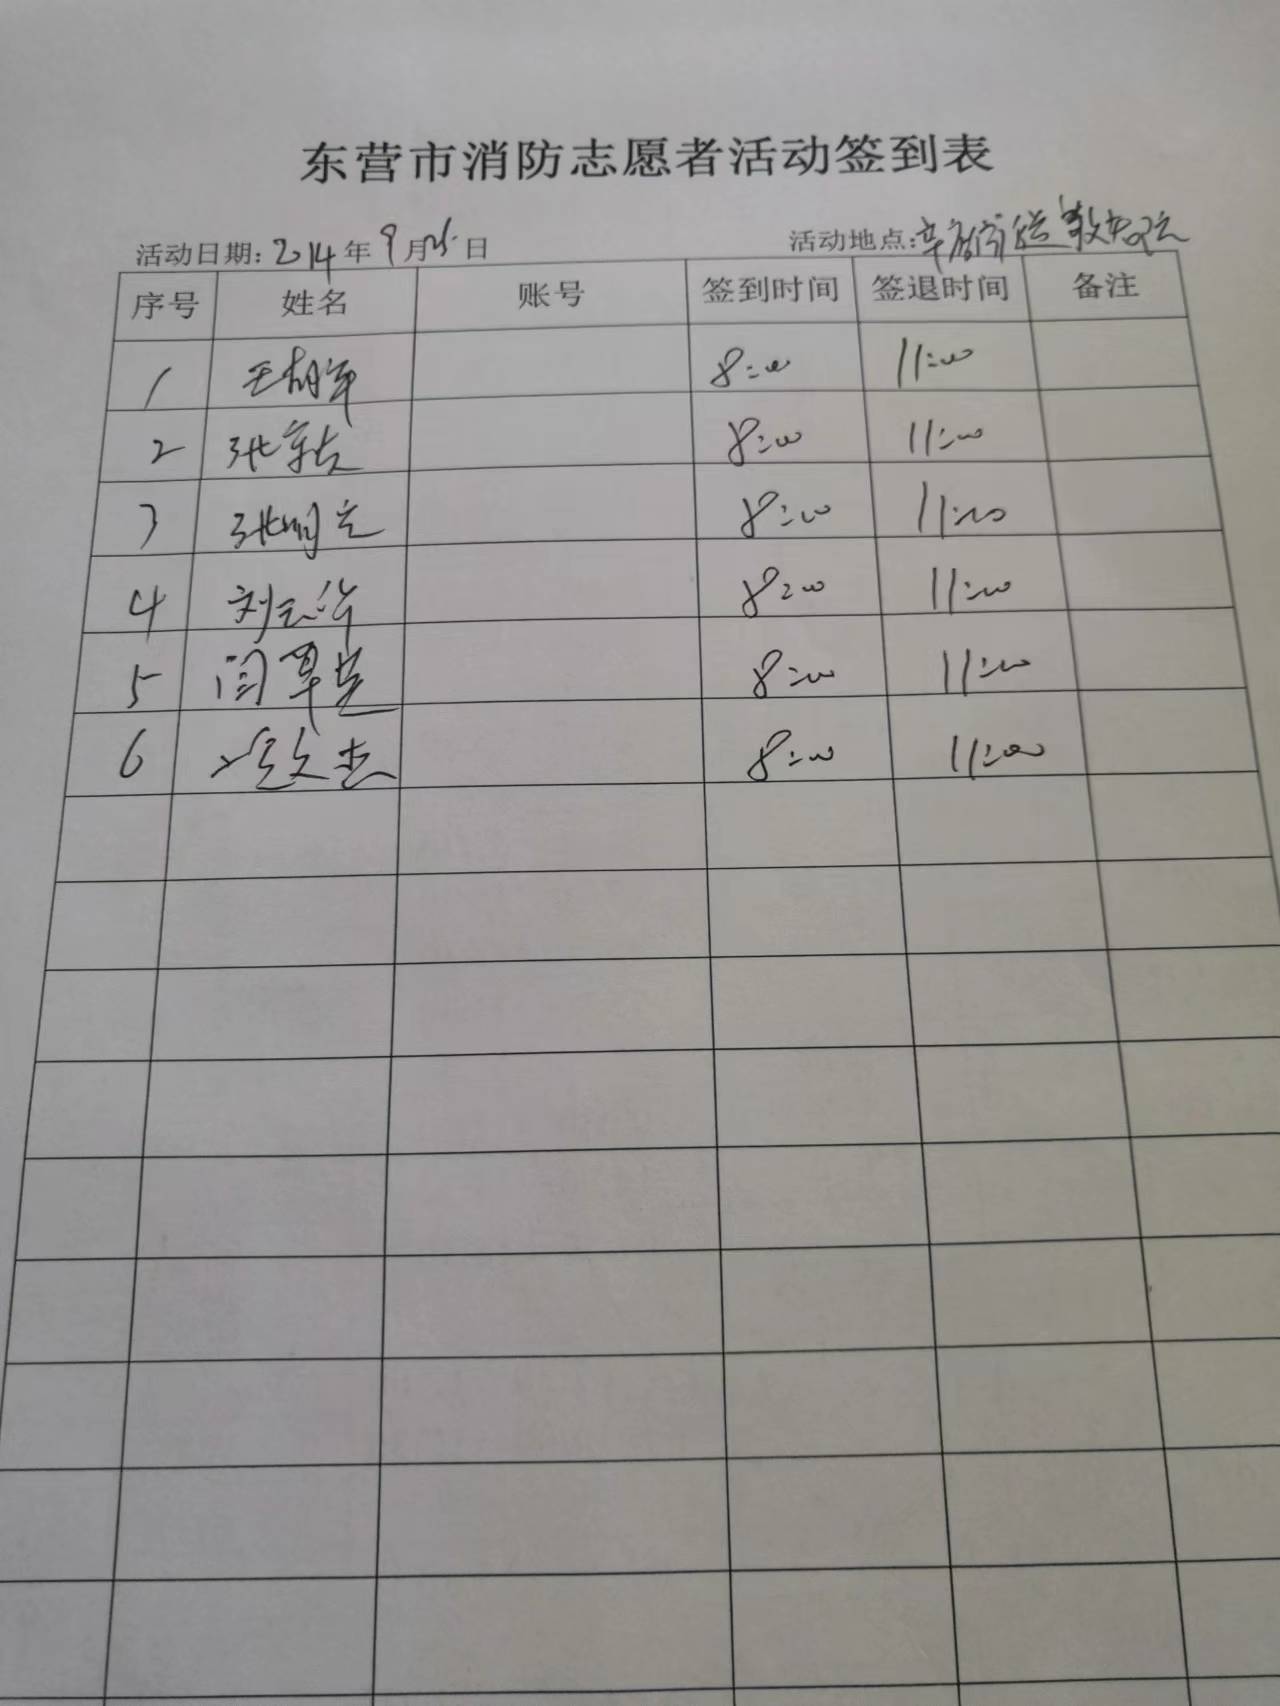 东营市消防志愿者活动签到表
活动日期: 2014年9月25日 活动地点:
序号 姓名 账号 签到时间 签退时间 备注
1 8:00 11:00
2 8:00 11:00
3 张明 8:00 11:00
4 刘 8:00 11:00
5 闫 8:00 11:00
6 文杰 8:00 11:00